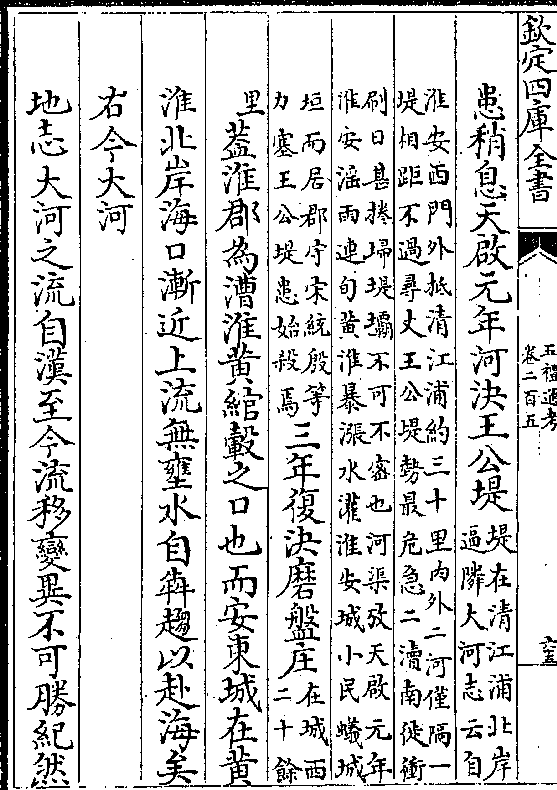 欽定四庫全書
五禮通考
卷二百五
患稍息天啟元年河決王公堤堤在清江浦北岸
逼隣大河志云自
淮安西門外抵清江浦約三十里内外二河僅隔一
堤相距不過尋丈王公堤勢最危急二瀆南徙衝
刷日甚捲埽堤壩不可不密也河渠攷天啟元年
淮安滛雨連旬黄淮暴漲水灌淮安城小民蟻城
垣而居郡守宋統殷等
力塞王公堤患始殺焉
三年復決磨盤庄在城西
二十餘
里葢淮郡為漕淮黄綰轂之口也而安東城在黄
淮北岸海口漸近上流無壅水自犇趨以赴海矣
右今大河
地志大河之流自漢至今流移變異不可勝紀然